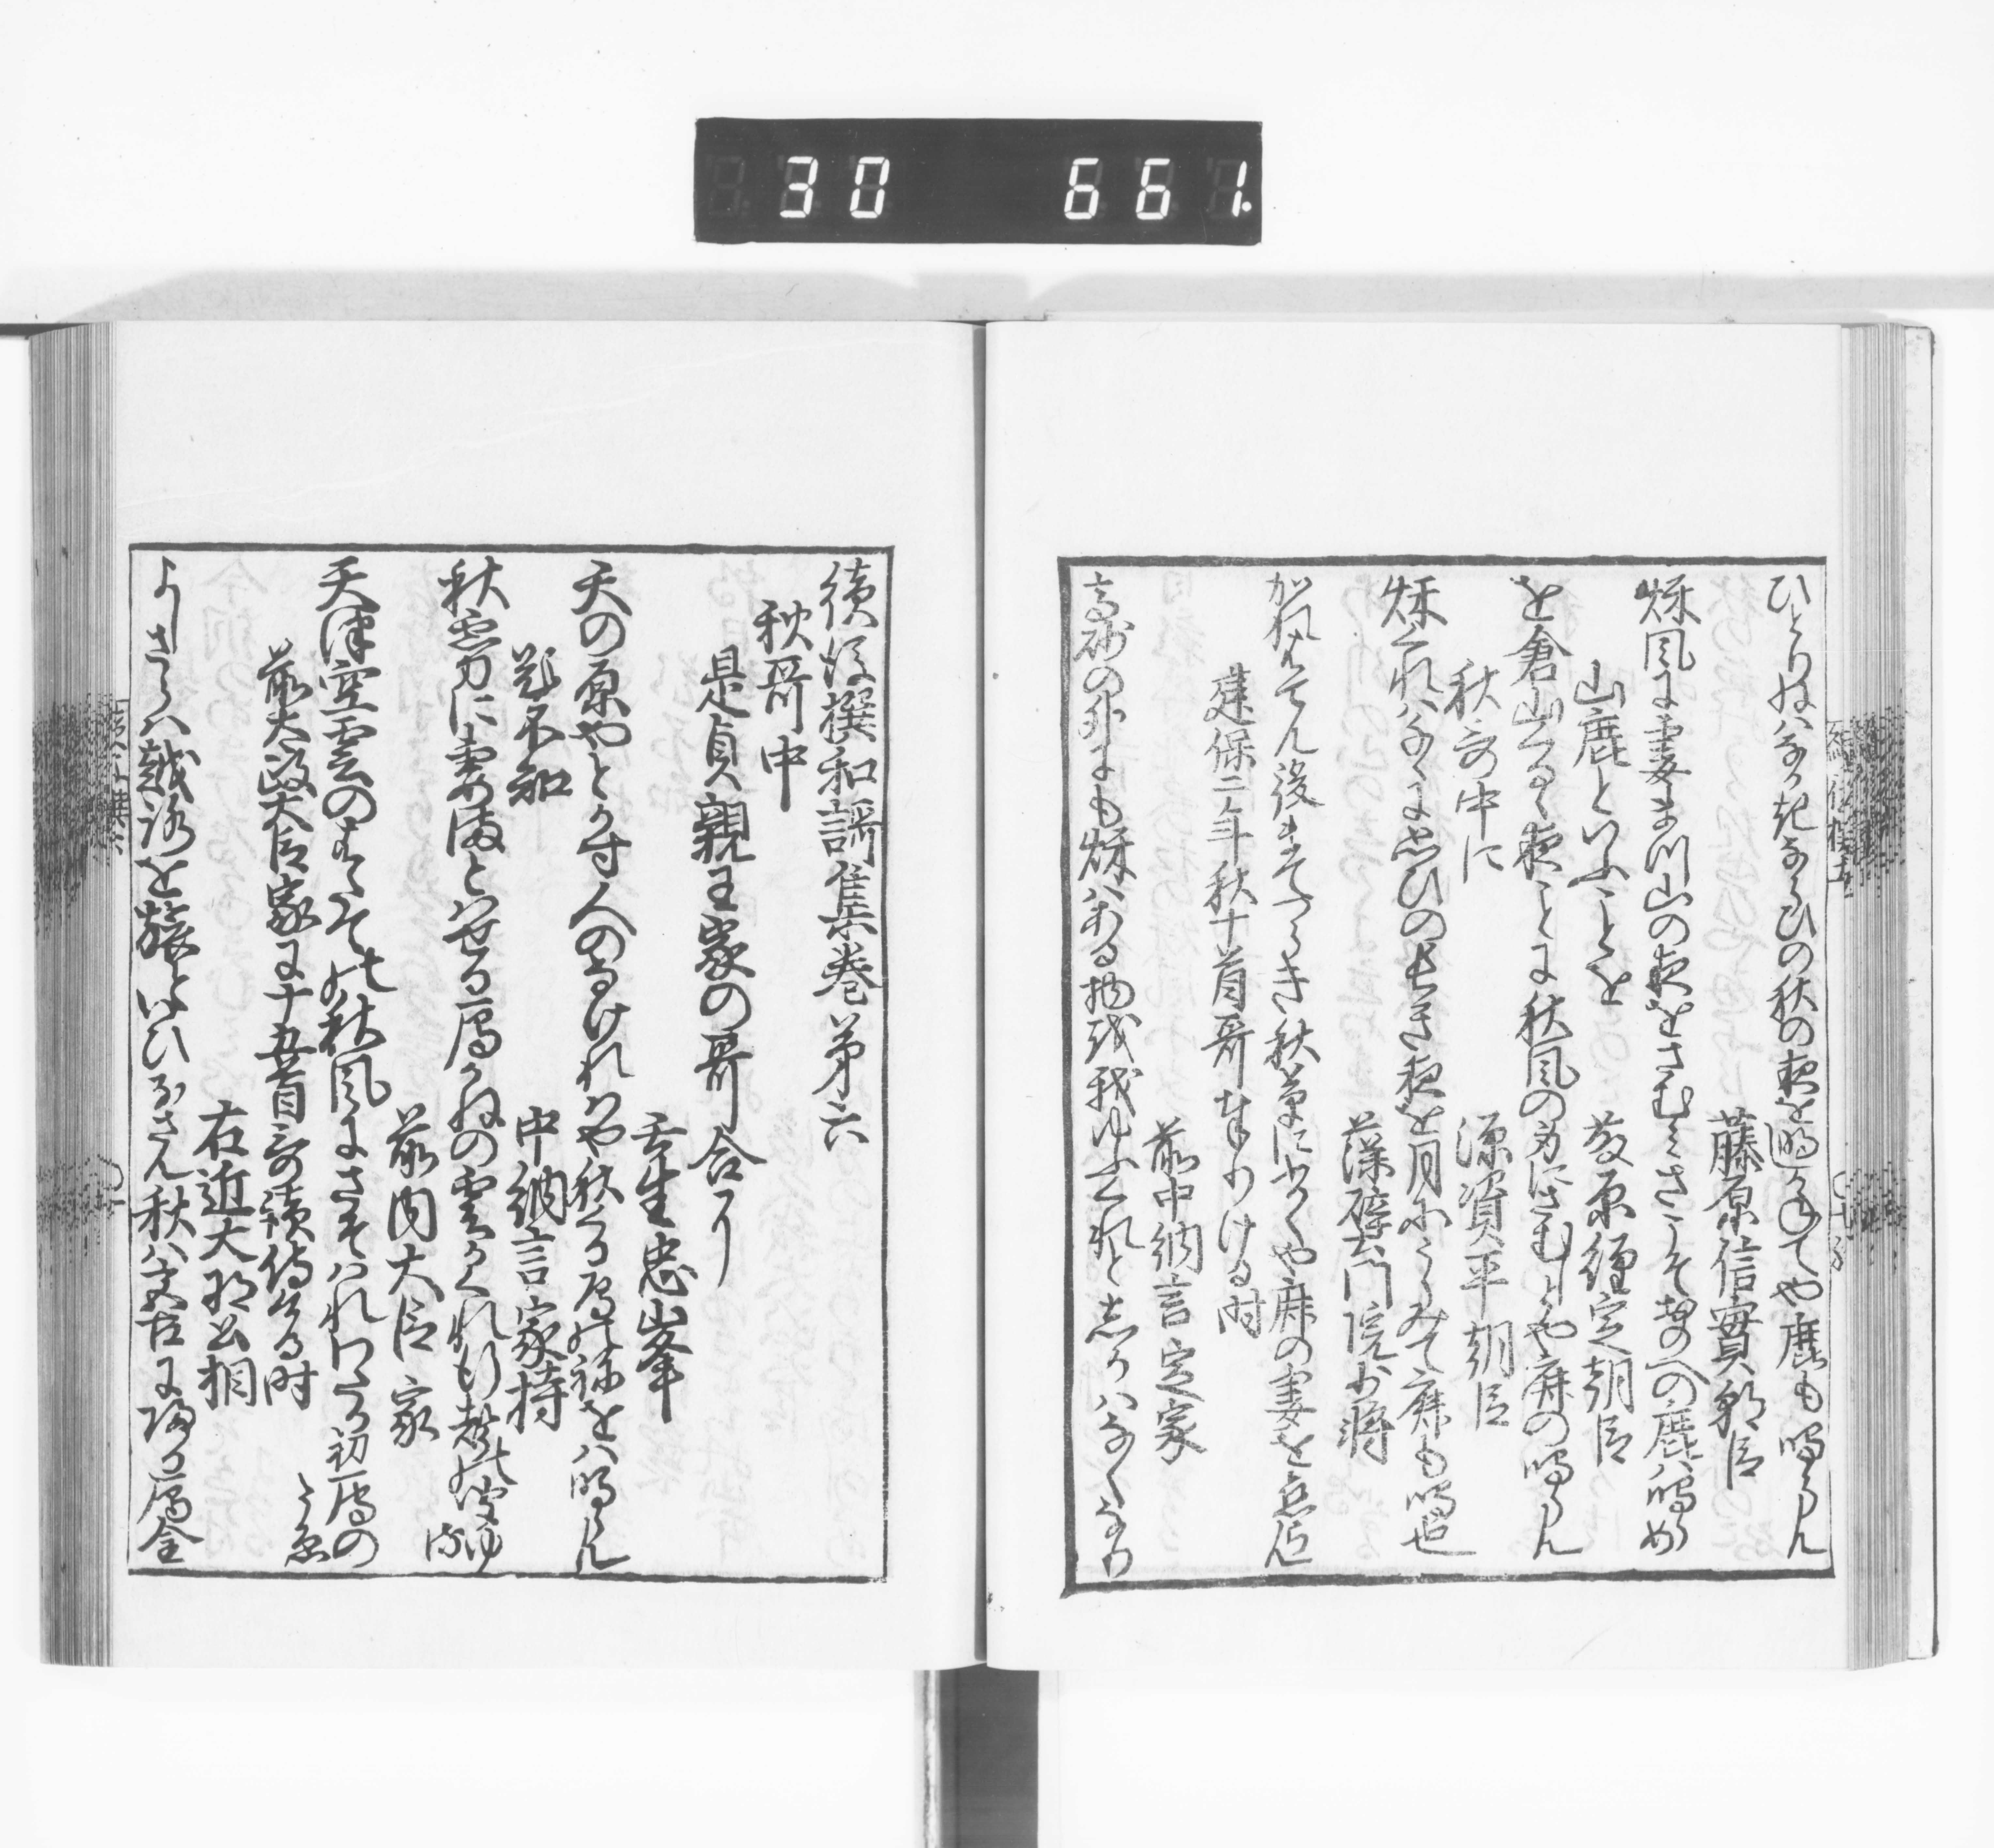 30 661.
ひとりねはならはぬならひの秋の夜を明しかねてや鹿も鳴らん
藤原信實朝臣
秌風に妻まつ山の夜をさむみさこそ尾のへの鹿は鳴らめ
山鹿といふことを
藤原經定朝臣
を倉山くるゝ夜ことに秋風の身にさむしとや鹿の鳴らん
秋哥中に
源資平朝臣
秌くれはなへに思ひの長き夜を月にうらみて鹿も鳴也
藻壁門院少将
かれはてん後まてつらき秋草に
や鹿の妻を恋らん
建保二年秋十首哥奉りける時
前中納言定家
高砂の外にも秌はある物を我ゆふくれと志かはなくなり
續後撰和謌集巻第六
秋哥中
是貞親王家の哥合に
壬生忠峯
天の原やとかす人のなけれはや秋くる鴈の祢をは鳴らん
題不知
中納言家持
秋霧に妻まとはせる鴈かねの雲かくれ行声の聞ゆる
前内大臣 家
天津空雲のはたての秋風にさそはれわたる初鴈のこゑ
前太政大臣家に十五首哥讀侍ける時
右近大将公相
よしさらは越路を旅といひなさん秋は古郷に帰る鴈金